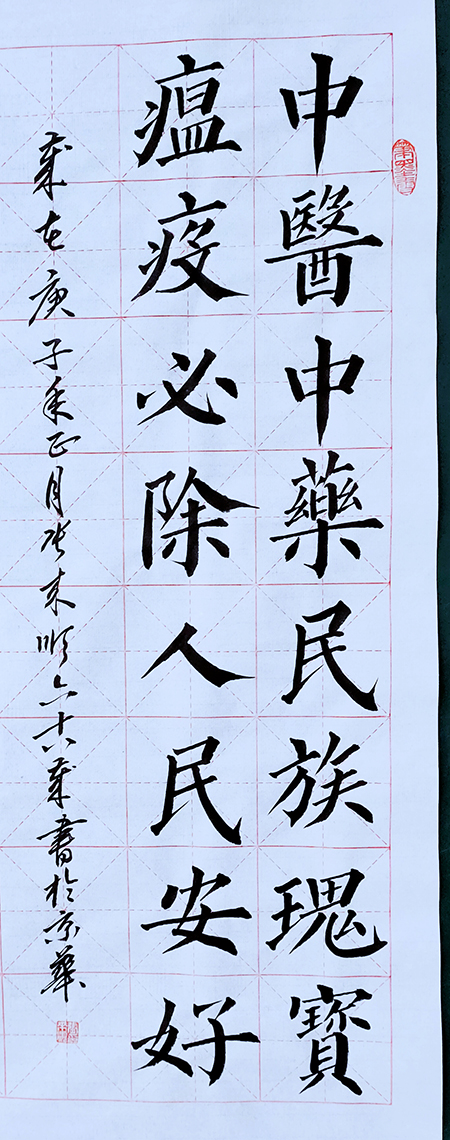 中醫中藥民族瑰寶
瘟疫必除人民安好
歲在庚子年正月張來順六十六歲書於京華